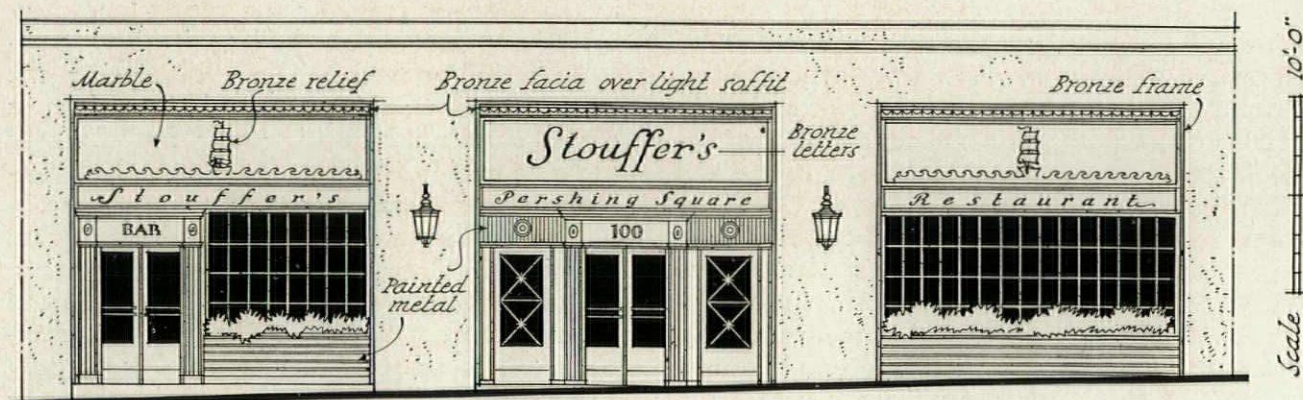 Marble
Bronze relief
Bronze facia over light soffit
Bronze frame
Stouffer's
Bronze
letters
Stouffer's
Pershing Square
Restaurant
BAR
100
Painted
metal
Scale 10'-0"